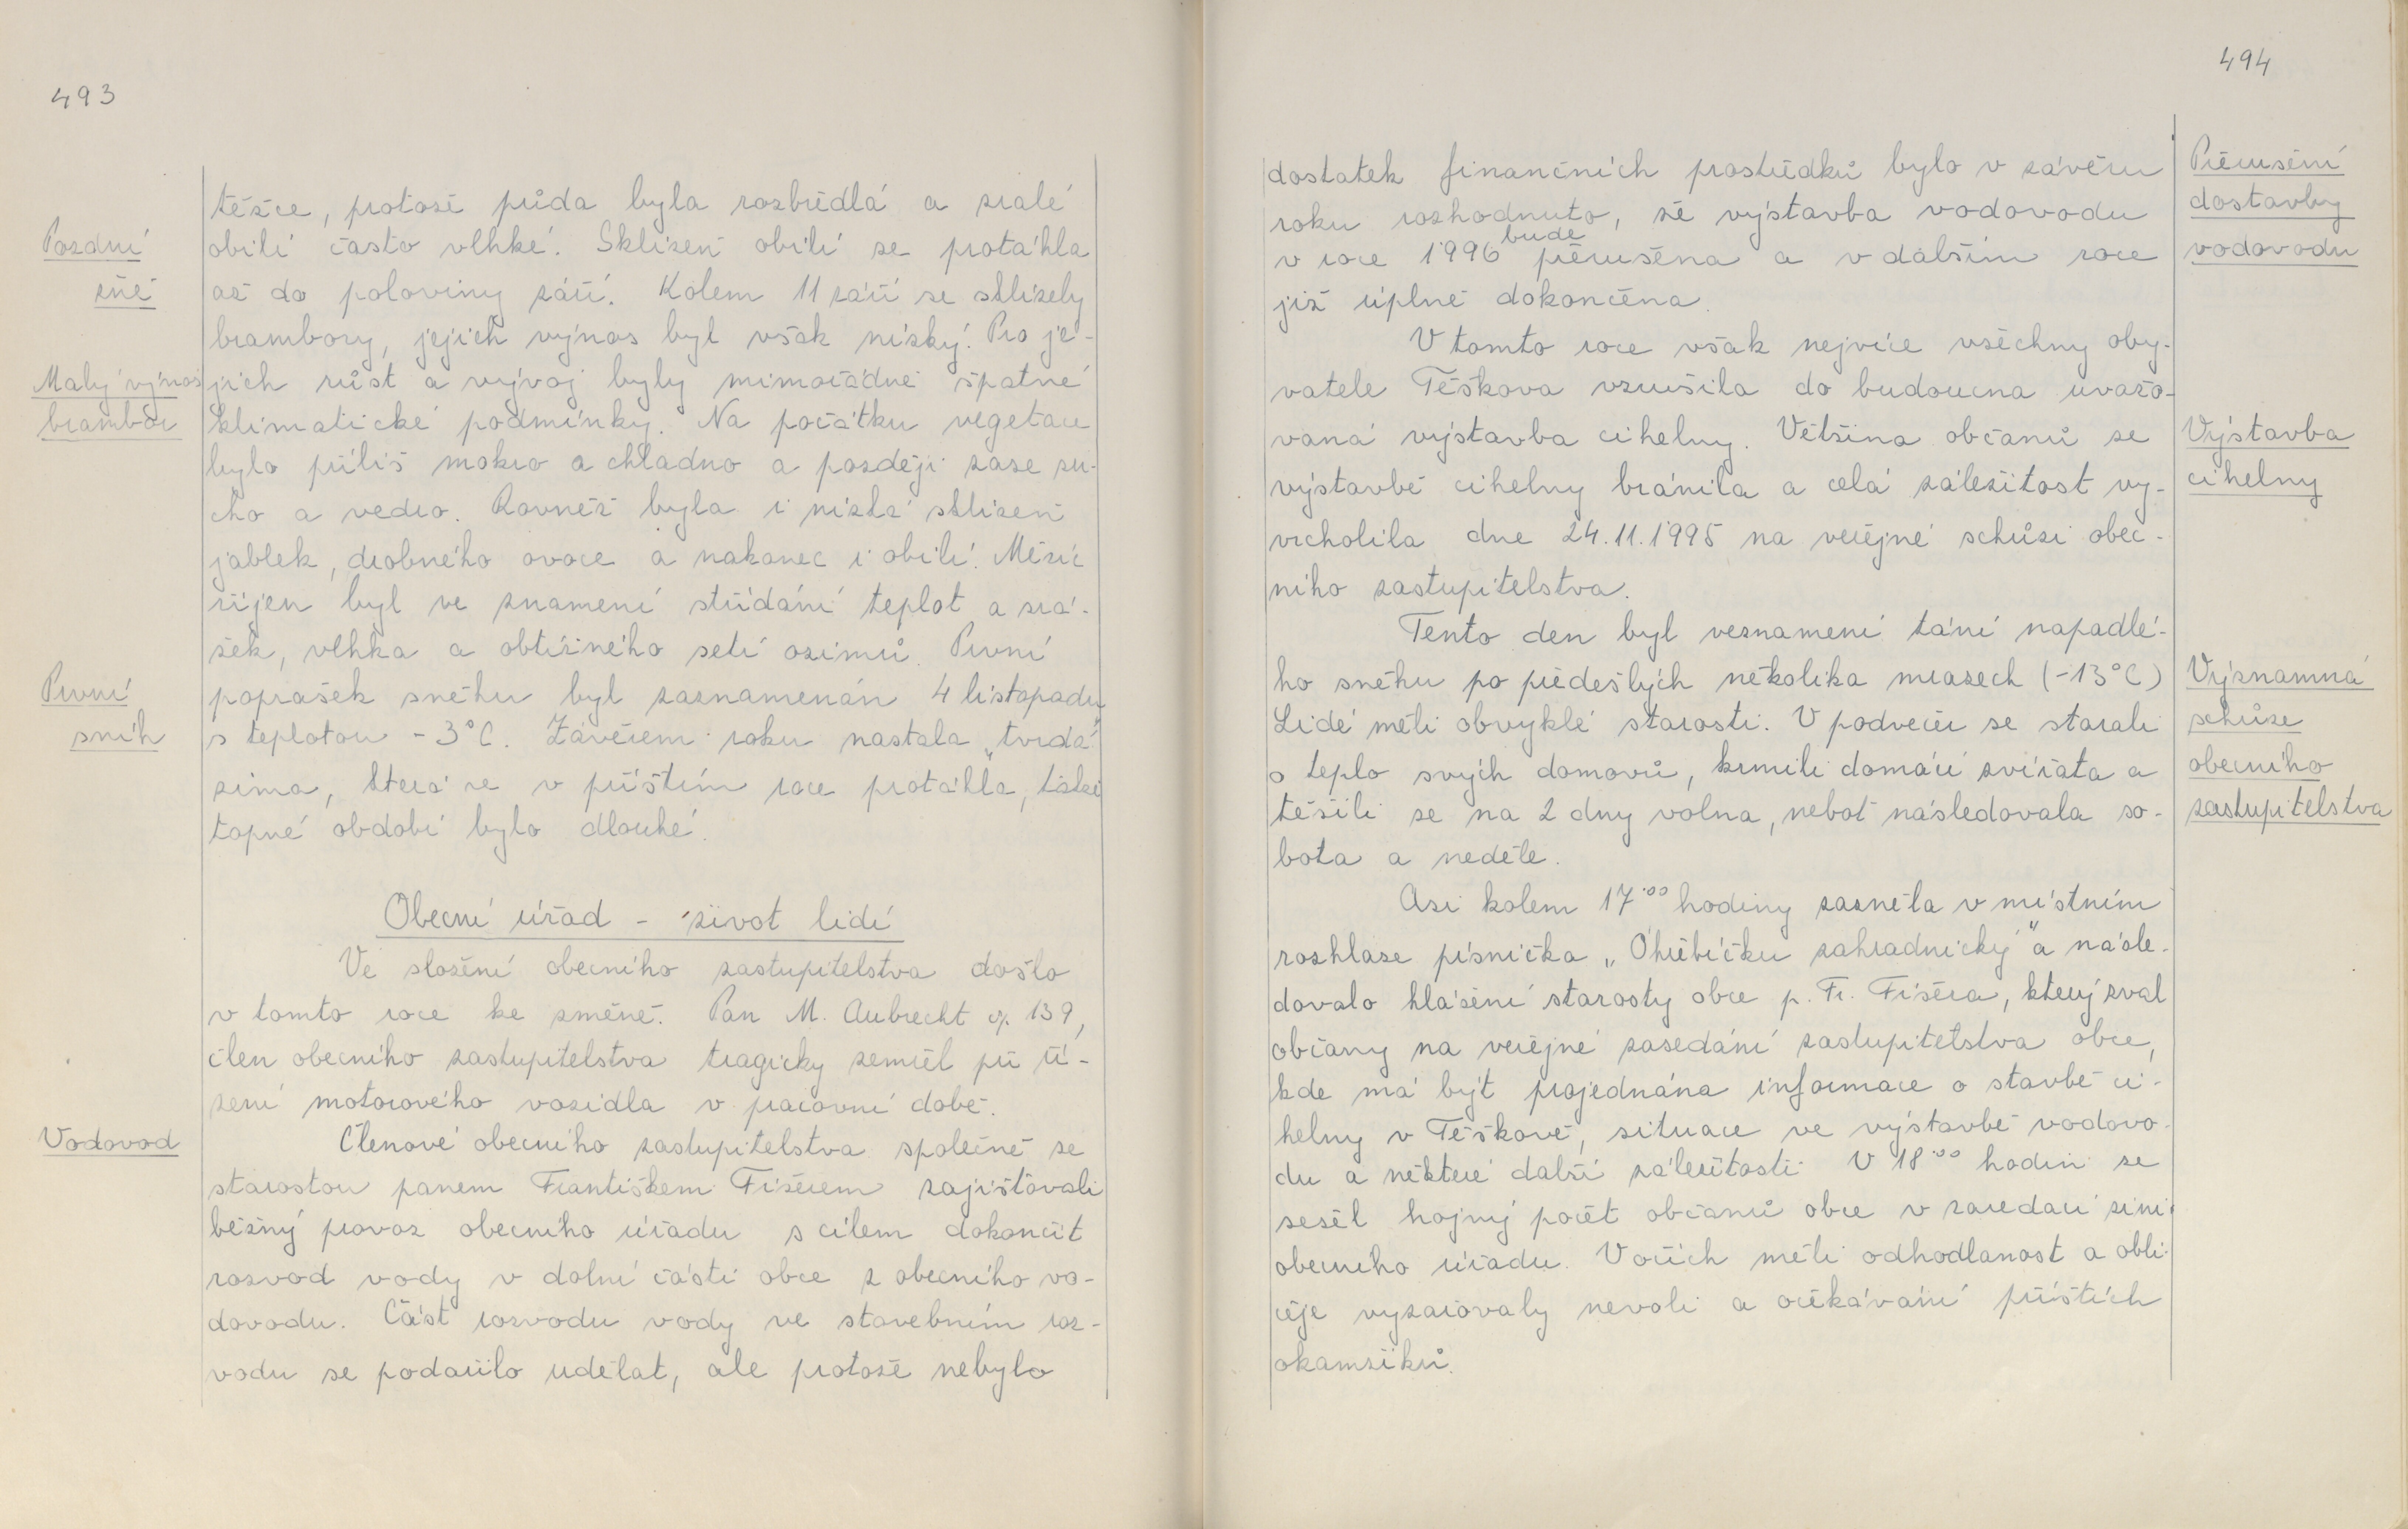 493
těžce, protože půda byla rozbředlá a zralé
Pozdní
obilí často vlhké. Sklizeň obilí se protáhla
žně
až do poloviny září. Kolem 11 září se sklízely
brambory, jejich výnos byl však nízký. Pro je-
Malý výnos
jich růst a vývoj byly mimořádně špatné
brambor
klimatické podmínky. Na počátku vegetace
bylo příliš mokro a chladno a později zase su-
cho a vedro. Rovněž byla i nízká sklizeň
jablek, drobného ovoce a nakonec i obilí. Měsíc
říjen byl ve znamení střídání teplot a srá-
žek, vlhka a obtížného setí ozimů. První
První
poprašek sněhu byl zaznamenán 4 listopadu
sníh
s teplotou -3°C. Závěrem roku nastala „tvrdá"
zima, která se v příštím roce protáhla, takže
topné období bylo dlouhé.
Obecní úřad - život lidí
Ve složení obecního zastupitelstva došlo
v tomto roce ke změně. Pan M. Aubrecht čp. 139,
člen obecního zastupitelstva tragicky zemřel při ří-
zení motorového vozidla v pracovní době.
Vodovod
Členové obecního zastupitelstva společně se
starostou panem Františkem Fišerem zajišťovali
běžný provoz obecního úřadu s cílem dokončit
rozvod vody v dolní části obce z obecního vo-
dovodu. Část rozvodu vody ve stavebním roz-
vodu se podařilo udělat, ale protože nebylo
494
dostatek finančních prostředků bylo v závěru
Přerušení
dostavby
vodovodu
roku rozhodnuto, že výstavba vodovodu
v roce 1996 bude přerušena a v dalším roce
již úplně dokončena.
V tomto roce však nejvíce všechny oby-
vatele Těškova vzrušila do budoucna uvažo-
vaná výstavba cihelny. Většina občanů se
Výstavba
cihelny
výstavbě cihelny bránila a celá záležitost vy-
vrcholila dne 24.11.1995 na veřejné schůzi obec-
ního zastupitelstva.
Tento den byl veznamení tání napadlé-
ho sněhu po předešlých několika mrazech (-13°C)
Významná
schůze
obecního
zastupitelstva
Lidé měli obvyklé starosti. V podvečer se starali
o teplo svých domovů, krmili domácí zvířata a
těšili se na 2 dny volna, neboť následovala so-
bota a neděle.
Asi kolem 17.00 hodiny zazněla v místním
rozhlase písnička „Ó hřebíčku zahradnický" a násle-
dovalo hlášení starosty obce p. Fr. Fišera, který zval
občany na veřejné zasedání zastupitelstva obce,
kde má být projednána informace o stavbě ci-
helny v Těškově, situace ve výstavbě vodovo-
du a některé další záležitosti. V 18.00 hodin se
sešel hojný počet občanů obce v zasedací síni
obecního úřadu. V očích měli odhodlanost a obli-
čeje vyzařovaly nevoli a očekávání příštích
okamžiků.